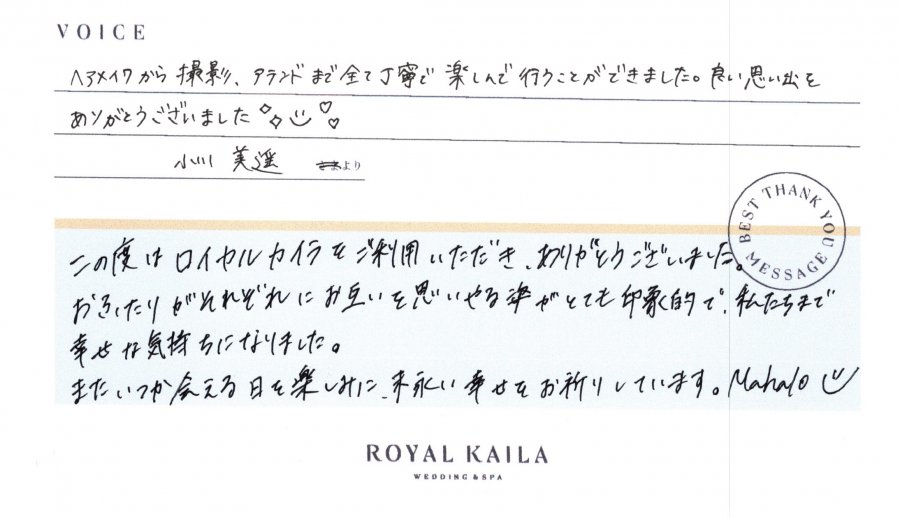 VOICE
ヘアメイクから撮影、アテンドまで全て丁寧で楽しんで行うことができました。良い思い出を
ありがとうございました
小川 美遥 さまより
BEST THANK YOU MESSAGE
この度はロイヤルカイラをご利用いただき、ありがとうございました。
おふたりがそれぞれにお互いを思いやる姿がとても印象的で、私たちまで
幸せな気持ちになりました。
またいつか会える日を楽しみに、末永い幸せをお祈りしています。Mahalo
ROYAL KAILA
WEDDING & SPA